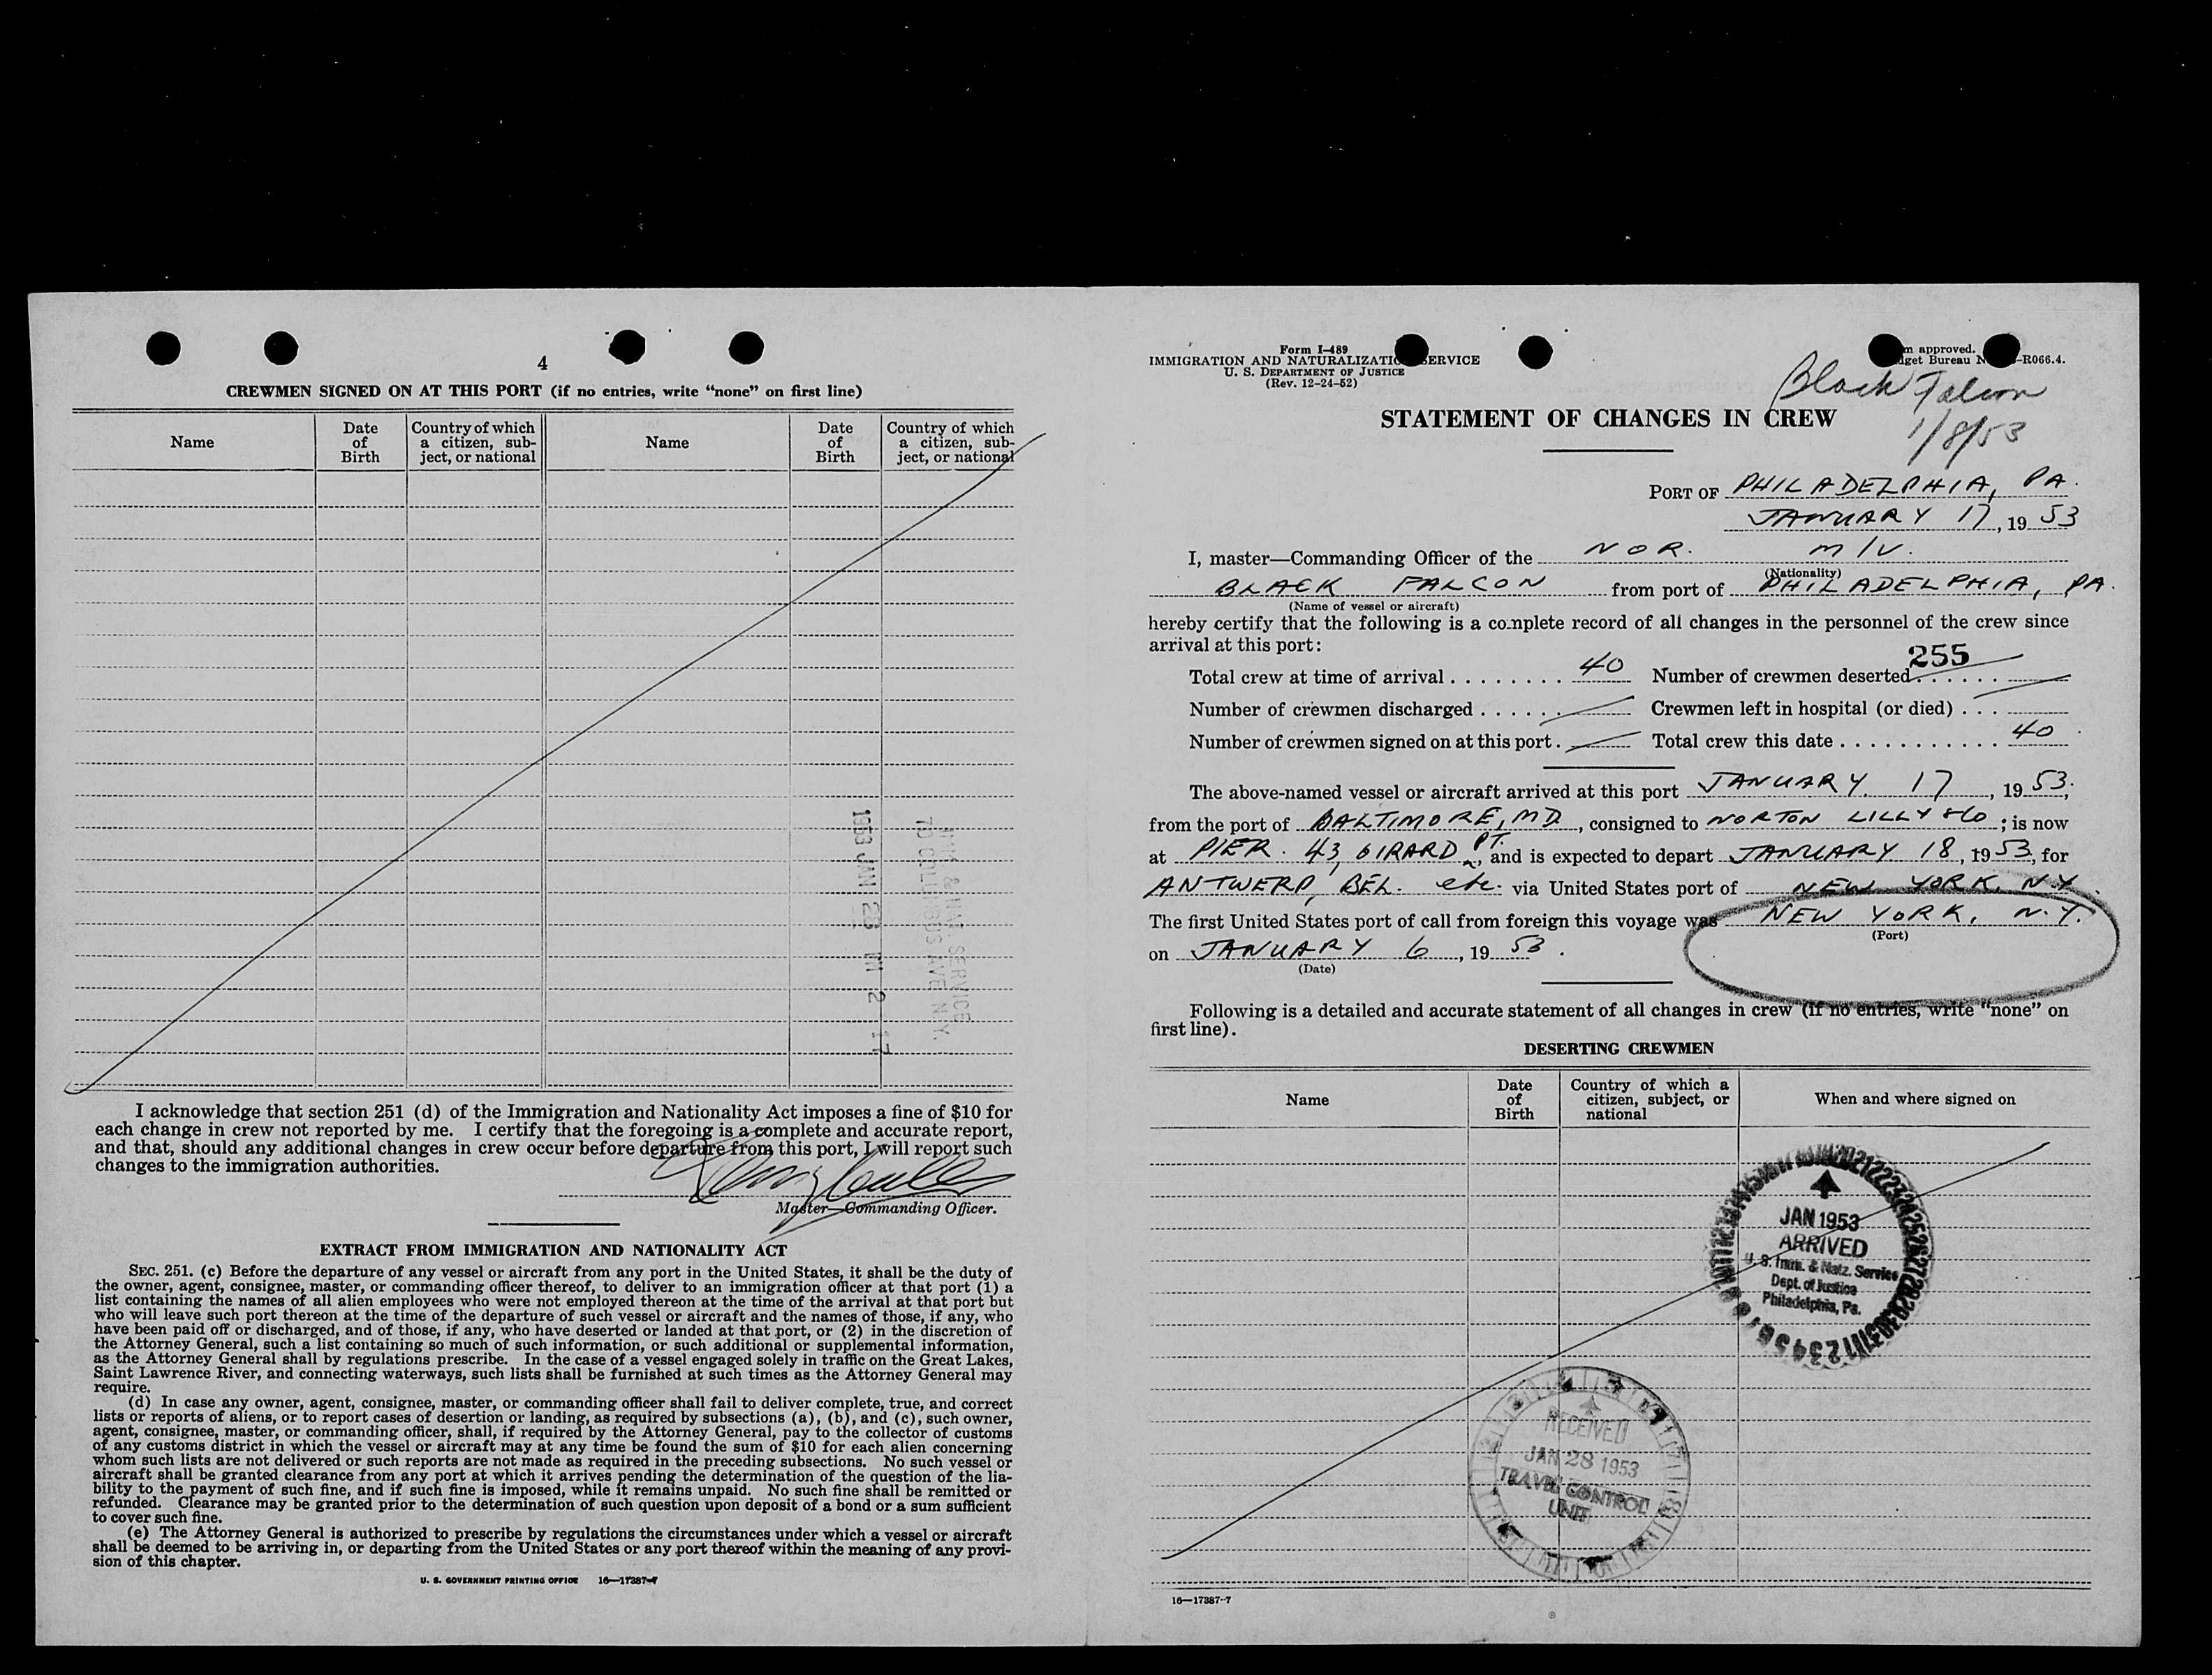 4
CREWMEN SIGNED ON AT THIS PORT (if no entries, write “none” on first line)
Name
Date of Birth
Country of which a citizen, sub-ject, or national
Name
Date of Birth
Country of which a citizen, sub-ject, or national
1953 JAN 28 PM 2 17
IMM & NAT. SERVICE
70 COLUMBUS AVE N.Y.
I acknowledge that section 251 (d) of the Immigration and Nationality Act imposes a fine of $10 for
each change in crew not reported by me. I certify that the foregoing is a complete and accurate report,
and that, should any additional changes in crew occur before departure from this port, I will report such
changes to the immigration authorities.
Master—Commanding Officer.
EXTRACT FROM IMMIGRATION AND NATIONALITY ACT
SEC. 251. (c) Before the departure of any vessel or aircraft from any port in the United States, it shall be the duty of
the owner, agent, consignee, master, or commanding officer thereof, to deliver to an immigration officer at that port (1) a
list containing the names of all alien employees who were not employed thereon at the time of the arrival at that port but
who will leave such port thereon at the time of the departure of such vessel or aircraft and the names of those, if any, who
have been paid off or discharged, and of those, if any, who have deserted or landed at that port, or (2) in the discretion of
the Attorney General, such a list containing so much of such information, or such additional or supplemental information,
as the Attorney General shall by regulations prescribe. In the case of a vessel engaged solely in traffic on the Great Lakes,
Saint Lawrence River, and connecting waterways, such lists shall be furnished at such times as the Attorney General may
require.
(d) In case any owner, agent, consignee, master, or commanding officer shall fail to deliver complete, true, and correct
lists or reports of aliens, or to report cases of desertion or landing, as required by subsections (a), (b), and (c), such owner,
agent, consignee, master, or commanding officer, shall, if required by the Attorney General, pay to the collector of customs
of any customs district in which the vessel or aircraft may at any time be found the sum of $10 for each alien concerning
whom such lists are not delivered or such reports are not made as required in the preceding subsections. No such vessel or
aircraft shall be granted clearance from any port at which it arrives pending the determination of the question of the lia-
bility to the payment of such fine, and if such fine is imposed, while it remains unpaid. No such fine shall be remitted or
refunded. Clearance may be granted prior to the determination of such question upon deposit of a bond or a sum sufficient
to cover such fine.
(e) The Attorney General is authorized to prescribe by regulations the circumstances under which a vessel or aircraft
shall be deemed to be arriving in, or departing from the United States or any port thereof within the meaning of any provi-
sion of this chapter.
U. S. GOVERNMENT PRINTING OFFICE 16—17387-7
Form I-489
IMMIGRATION AND NATURALIZATIO SERVICE
U. S. DEPARTMENT OF JUSTICE
(Rev. 12-24-52)
m approved.
get Bureau N -R066.4.
Black Falcon
1/8/53
STATEMENT OF CHANGES IN CREW
PORT OF PHILADELPHIA, PA.
JANUARY 17, 1953
I, master—Commanding Officer of the NOR. M/V.
(Nationality)
BLACK FALCON from port of PHILADELPHIA, PA.
(Name of vessel or aircraft)
hereby certify that the following is a complete record of all changes in the personnel of the crew since
arrival at this port:
255
Total crew at time of arrival . . . . . . . . 40 Number of crewmen deserted . . . . . .
Number of crewmen discharged . . . . . . Crewmen left in hospital (or died) . . .
Number of crewmen signed on at this port. Total crew this date . . . . . . . . . . . 40
The above-named vessel or aircraft arrived at this port JANUARY 17, 1953;
from the port of BALTIMORE, MD, consigned to NORTON LILLY &Co; is now
at PIER. 43, GIRARD PT., and is expected to depart JANUARY 18, 1953, for
ANTWERP, BEL. etc. via United States port of NEW YORK, N.Y.
The first United States port of call from foreign this voyage was NEW YORK, N.Y.
(Port)
on JANUARY 6, 1953.
(Date)
Following is a detailed and accurate statement of all changes in crew (if no entries, write “none” on
first line).
DESERTING CREWMEN
Name
Date of Birth
Country of which a citizen, subject, or national
When and where signed on
JAN 1953
ARRIVED
U. S. Imm. & Natz. Service
Dept. of Justice
Philadelphia, Pa.
RECEIVED
JAN 28 1953
TRAVEL CONTROL
UNIT
16—17387-7